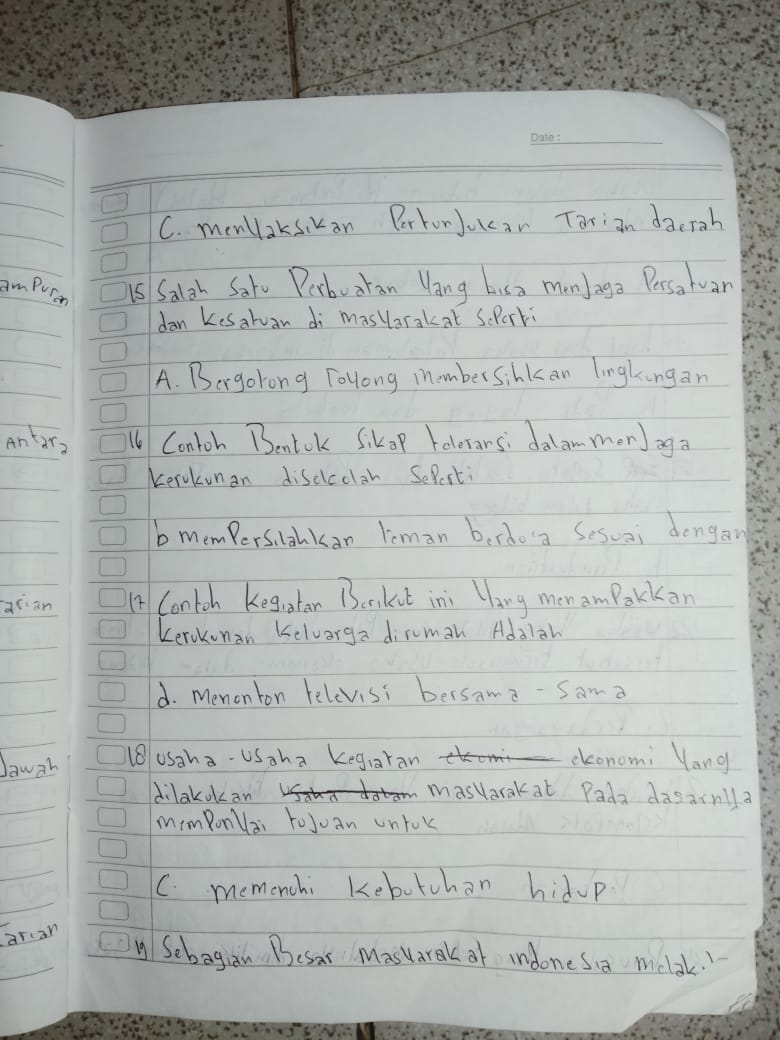 Date :
C. menyaksikan Pertunjukan Tarian daerah
ampuran
15 Salah satu Perbuatan Yang bisa menjaga Persatuan
dan kesatuan di masyarakat seperti
A. Bergotong royong membersihkan lingkungan
Antara
16 Contoh Bentuk sikap toleransi dalam menjaga
kerukunan disekolah seperti
b memPersilahkan teman berdo'a sesuai dengan
arian
17 Contoh kegiatan Berikut ini Yang menampakkan
kerukunan keluarga dirumah Adalah
d. Menonton televisi bersama - sama
Jawah
18 usaha - usaha kegiatan ekonomi Yang
dilakukan usaha dalam masyarakat Pada dasarnya
mempunyai tujuan untuk
C. memenuhi kebutuhan hidup
Tarian
19 Sebagian Besar Masyarakat indonesia